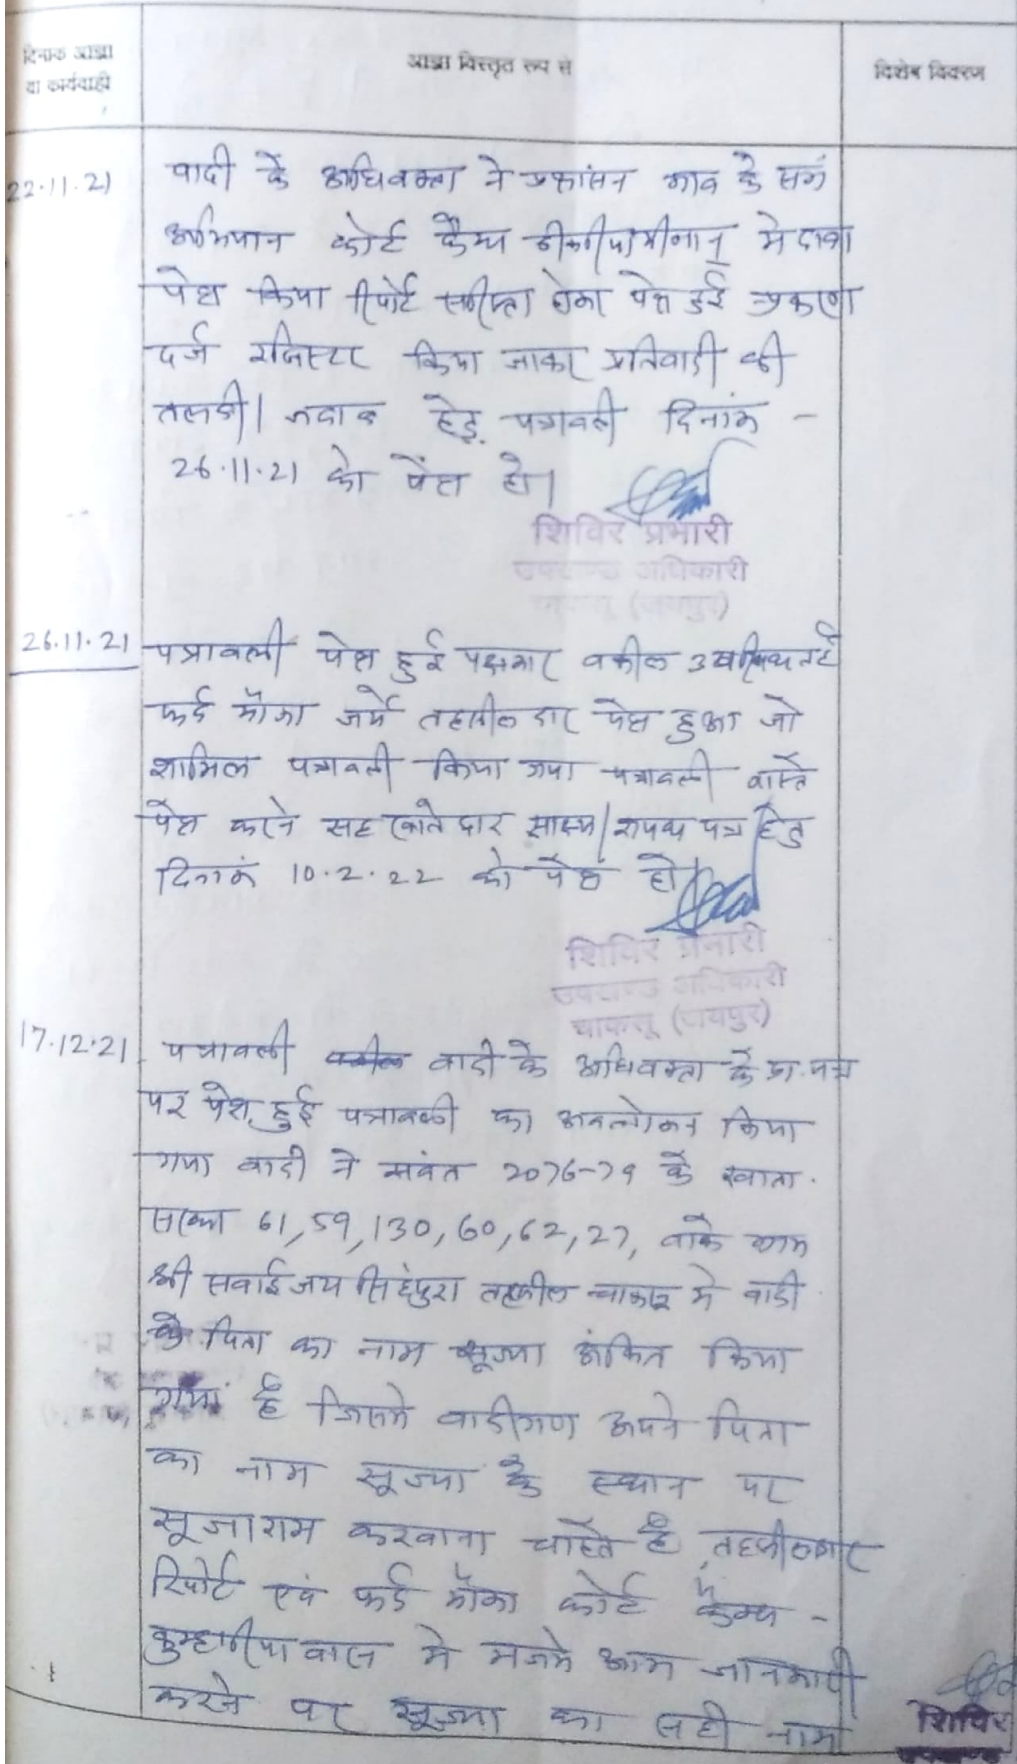 दिनांक आज्ञा
या कार्यवाही
आज्ञा विस्तृत रूप से
विशेष विवरण
22.11.21
वादी के अधिवक्ता ने प्रशासन गाव के संग
अभियान कोर्ट कैम्प में दावा
पेश किया रिपोर्ट होकर पेश हुई प्रकरण
दर्ज रजिस्टर किया जाकर प्रतिवादी की
तलबी। हेतु पत्रावली दिनांक -
26.11.21 को पेश हो।
शिविर प्रभारी
उपखण्ड अधिकारी
चाकसू (जयपुर)
26.11.21
पत्रावली पेश हुई पक्षकार वकील
फर्द मौका जर्ये तहसीलदार पेश हुआ जो
शामिल पत्रावली किया गया पत्रावली वास्ते
पेश करने सहखातेदार साक्ष्य/शपथ पत्र हेतु
दिनांक 10.2.22 को पेश हो।
शिविर प्रभारी
उपखण्ड अधिकारी
चाकसू (जयपुर)
17.12.21
पत्रावली वादी के अधिवक्ता के प्रा. पत्र
पर पेश हुई पत्रावली का अवलोकन किया
गया वादी ने संवत 2076-79 के खाता
संख्या 61, 59, 130, 60, 62, 27, वाके ग्राम
श्री सवाई जयसिंहपुरा तहसील चाकसू मे वादी
के पिता का नाम सूज्या अंकित किया
गया है जिसमे वादीगण अपने पिता
का नाम सूज्या के स्थान पर
सूजाराम करवाना चाहते है, तहसीलदार
रिपोर्ट एवं फर्द मौका कोर्ट कैम्प -
कुम्हारीयावास मे मजमे आम जानकारी
करने पर सूज्या का सही नाम
शिविर